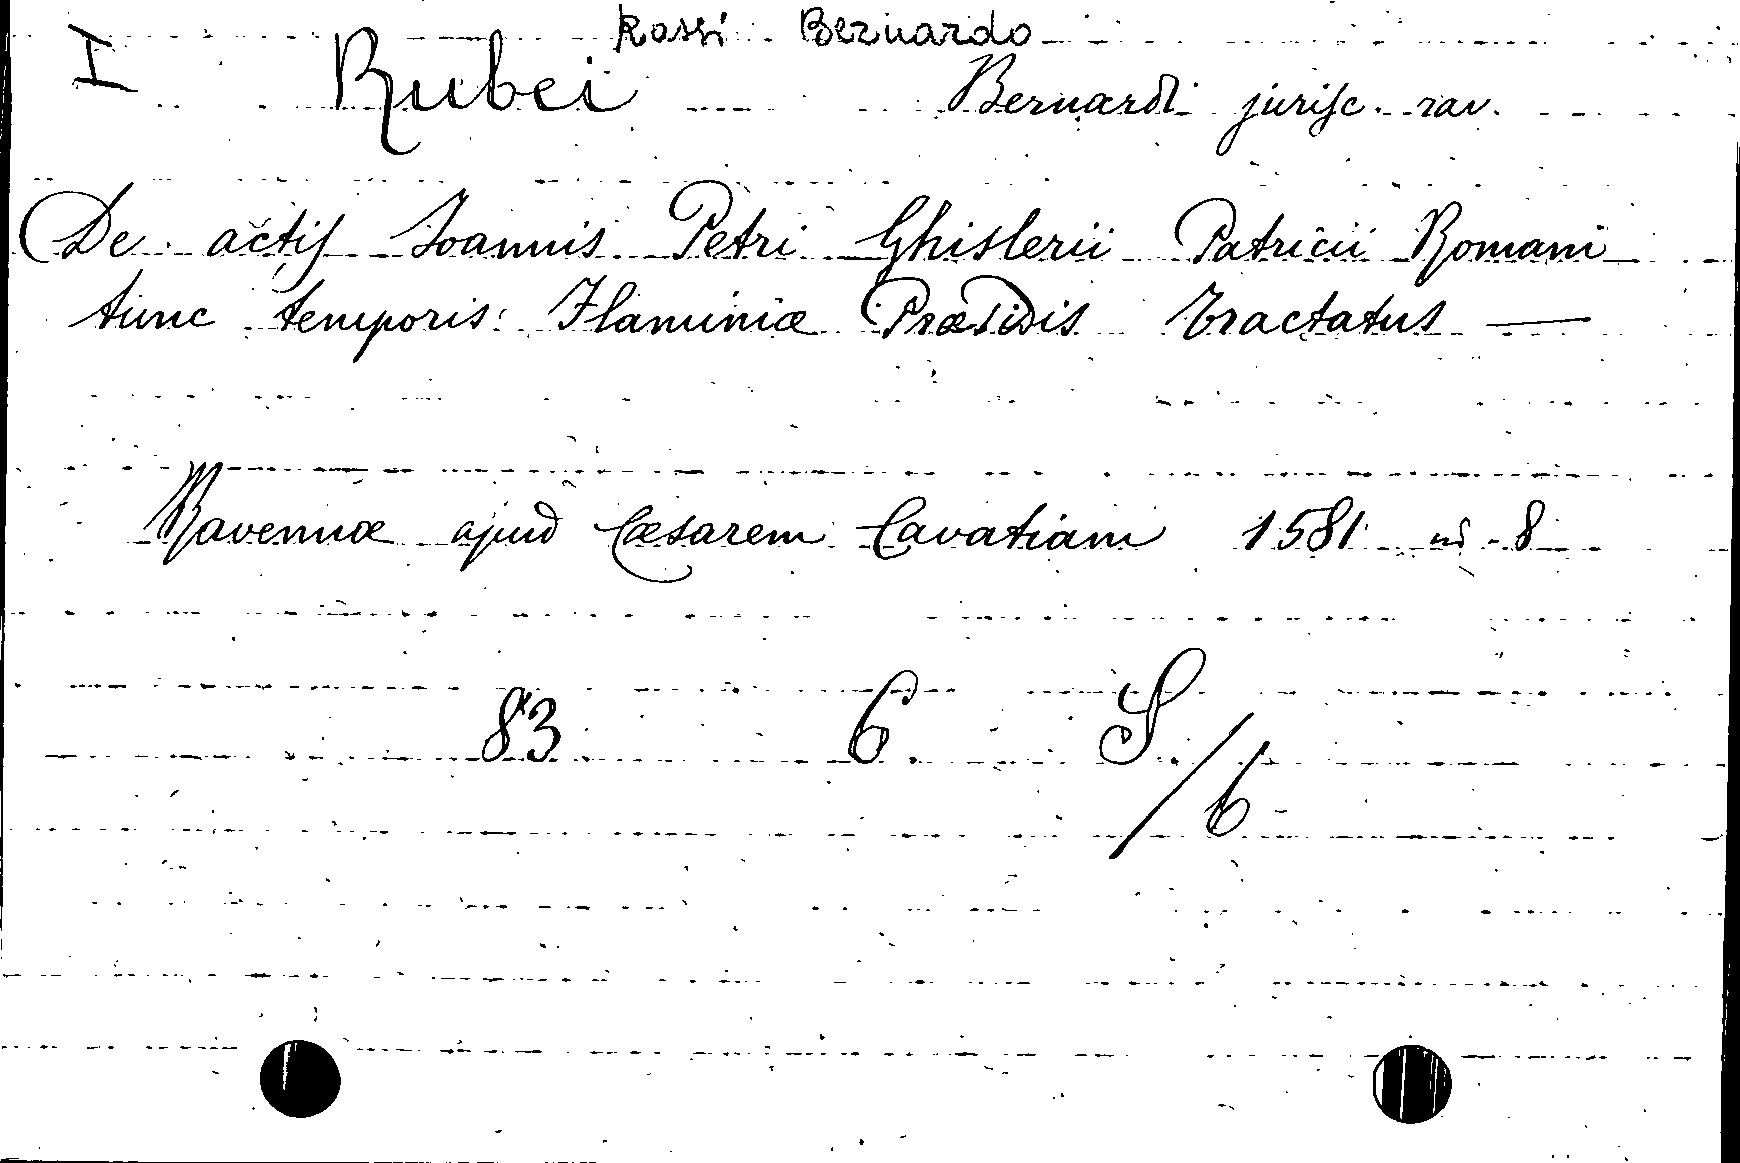 Rossi Bernardo
I Rubei Bernardi jurisc. rav.
De actis Joannis Petri Ghislerii Patricii Romani
tunc temporis Flaminiæ Præsidis tractatus —
Ravennæ apud Cæsarem Cavatiam 1581 in 8
83 6 S
/6